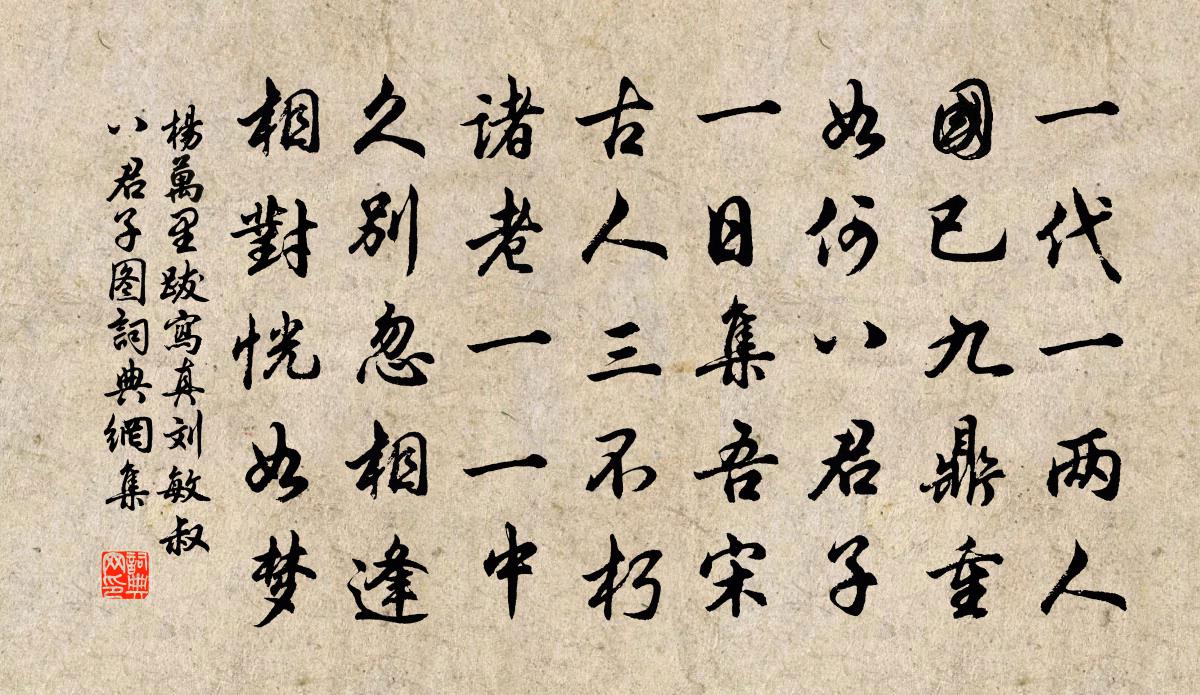 一代一两人
國已九鼎重
如何八君子
一日集吾宋
古人三不朽
諸老一一中
久別忽相逢
相對恍如梦
楊萬里跋寫真刘敏叔
八君子图詞典網集
詞典
网印